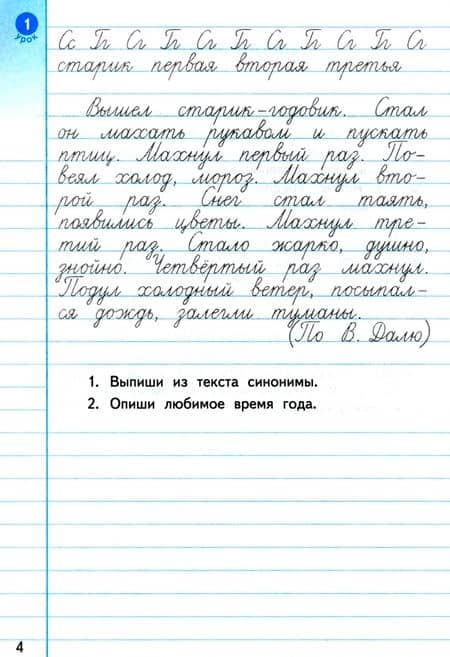 1
урок
Сс Гг Сг Гг Сг Гг Сг Гг Сг Гг Сг
старик первая вторая третья
Вышел старик-годовик. Стал
он махать рукавом и пускать
птиц. Махнул первый раз. По-
веял холод, мороз. Махнул вто-
рой раз. Снег стал таять,
появились цветы. Махнул тре-
тий раз. Стало жарко, душно,
знойно. Четвёртый раз махнул.
Подул холодный ветер, посыпал-
ся дождь, залегли туманы.
(По В. Далю)
1. Выпиши из текста синонимы.
2. Опиши любимое время года.
4